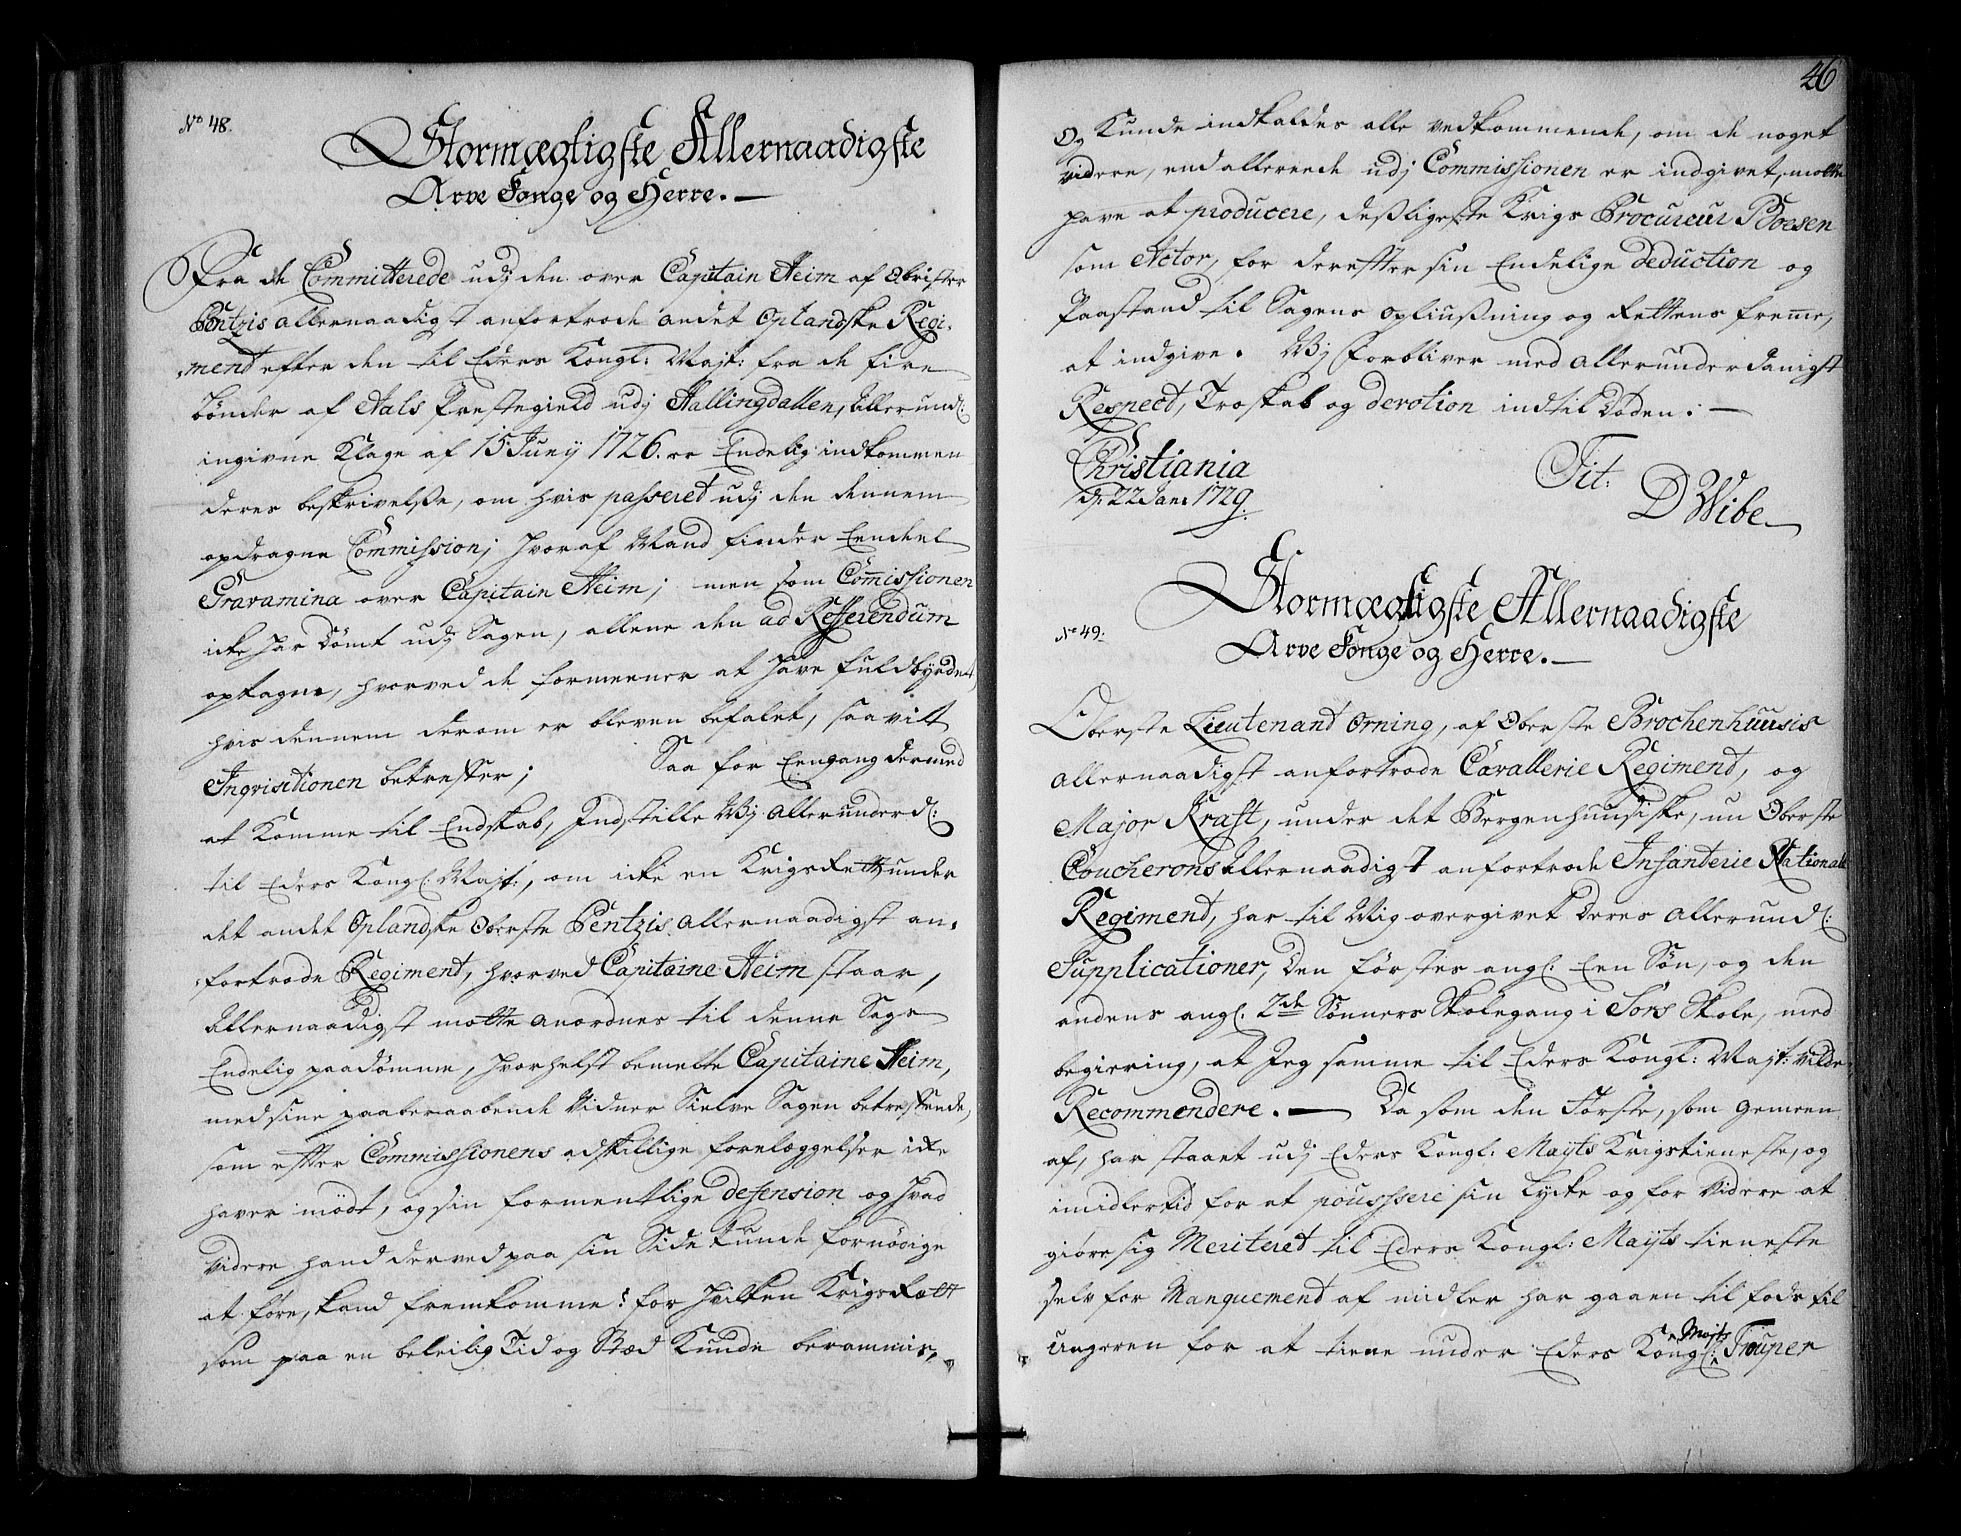 No 48.
Stormægtigste Allernaadigste
Arve Konge og Herre. —
Fra de Committerede udj den over Capitain Heim af Obrister
Pentzis allernaadigst anfortrode andet Oplandske Regi-
ment efter den til Eders Kongl: Majt: fra de fire
bønder af Aals Præstegield udj Hallingdallen, Allerund:
ingivne Klage af 15 Juny 1726. er Endelig indkommen
deres beskrivelße, om hvis passeret udj den dennem
opdragne Commission; hvoraf Mand finder Eendeel
Gravamina over Capitain Heim; men som Commissionen
icke har dømt udj Sagen, allene den ad Refferendum
optagne, hvorved de formeener at have fuldbyrdet,
hvis dennem derom er bleven befalet, saavit
Inqvisitionen betreffer; Saa for Eengang dermed
at komme til Endskab, Indstille Wj allerunderd:
til Eders Kongl: Majt:, om icke en KrigsRett under
det andet Oplandske Oberste Pentzis allernaadigst an-
fortrode Regiment, hvorved Capitaine Heim staar,
Allernaadigst motte anordnes til denne Sags
Endelig paadømme, hvorhelst bemelte Capitaine Heim,
med sine paaberaabende Vidner Sielve Sagen betreffende,
som efter Commissionens adskillige forelæggelser icke
haver mødt, og sin formentlige defension og hvad
Videre hand derved paa sin Side kunde fornødige
at føre, kand fremkomme: for hvilken KrigsRett
som paa en beleilig Tid og Stæd Kunde berammis,
46
og Kunde indkaldes alle vedkommende, om de noget
videre, end allereede udj Commissionen er indgivet, motte
have at producere, deßligeste Krigs Procureur Povesen
som Actor, for derefter sin Endelige deduction og
Paastand til Sagens opliußning og Rettens fremme,
at indgive. Wj forbliver med allerunderdanigst
Respect, Troskab og devotion indtil Døden: —
Christiania
d: 22 Jan: 1729.
Tit:
D Wibe
Stormægtigste Allernaadigste
No 49.
Arve Konge og Herre. —
Oberste Lieutenant Orning, af Oberste Brochenhuusis
allernaadigst anfortrode Cavallerie Regiment, og
Major Kraft, under det Bergenhuusiske, nu Oberste
Coucherons Allernaadigst anfortrode Infanterie National
Regiment, har til Mig overgivet Deres allerund:
Supplicationer, Den førstes ang: Een Søn, og den
andens ang: 2de Sønners Skolegang i Sors Skole, med
begiering, at Jeg samme til Eders Kongl: Majt: vilde
Recommendere. — Da som den Første, som Gemeen
af, har staaet udj Eders Kongl: Mayts Krigstieneste, og
imidlertid for at pousssere sin Lycke og for Videre at
giøre sig Meriteret til Eders Kongl: Mayts tieneste
selv for Manquement af midler har gaaen til fods til
Ungeren for at tiene under Eders Kongl: Majts Trouper